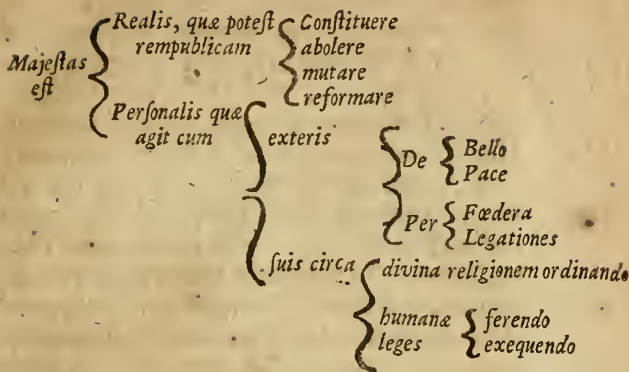 Majeſtas
eſt
Realis, quæ poteſt
rempublicam
Conſtituere
abolere
mutare
reformare
Perſonalis quæ
agit cum
exteris
De
Bello
Pace
Per
Fœdera
Legationes
ſuis circa
divina religionem ordinando
humanæ
leges
ferendo
exequendo